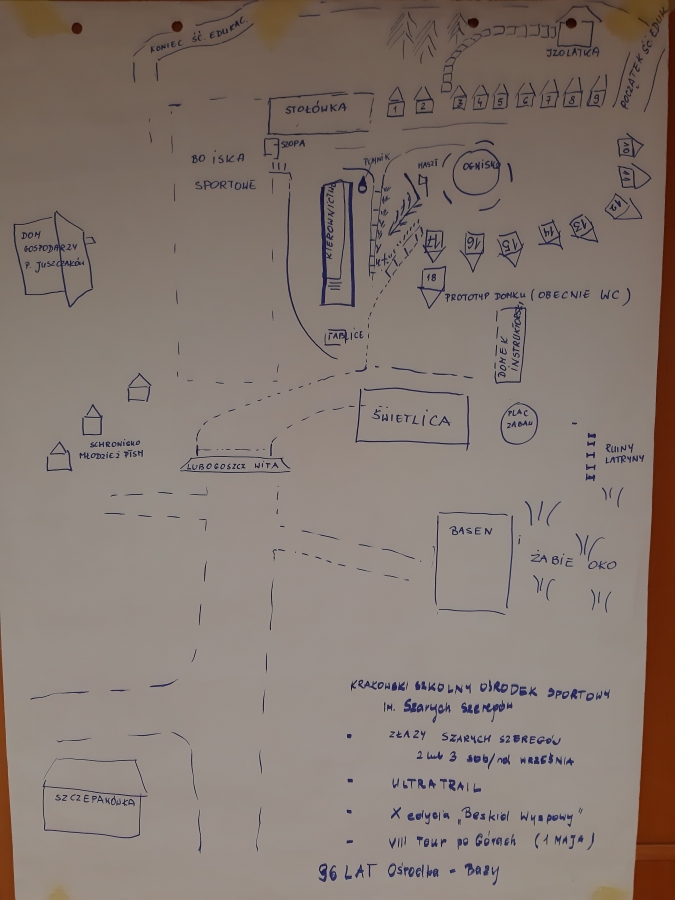 KONIEC ŚC EDUKAC.
IZOLATKA
POCZĄTEK ŚC EDUK
STOŁÓWKA
1 2 3 4 5 6 7 8 9
SZOPA
BOISKA
SPORTOWE
POMNIK
MASZT
OGNISKO
10
11
12
13
14
15
16
17
18
KIEROWNICTWO
DOM
GOSPODARZY
P. JUSZCZAKÓW
PROTOTYP DOMKU (OBECNIE WC)
TABLICE
DOMEK
INSTRUKTORSKI
ŚWIETLICA
PLAC
ZABAW
SCHRONISKO
MŁODZIEŻ PTSM
LUBOGOSZCZ WITA
RUINY
LATRYNY
BASEN
i
ŻABIE OKO
KRAKOWSKI SZKOLNY OŚRODEK SPORTOWY
im. Szarych Szeregów
• ZŁAZY SZARYCH SZEREGÓW
2 lub 3 sob/nd WRZEŚNIA
• ULTRATRAIL
• X edycja „Beskid Wyspowy"
- VIII Tour po Górach (1 MAJA)
SZCZEPANÓWKA
96 LAT Ośrodka - Bazy